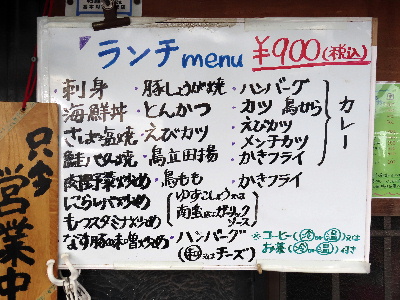 ランチmenu ¥900(税込)
刺身
海鮮丼
さば塩焼
鮭バター焼
肉野菜炒め
にらレバ炒め
もつスタミナ炒め
なす豚味噌炒め
・豚しょうが焼
・とんかつ
・えびカツ
・鳥立田揚
・鳥もも
(ゆずこしょう又は
南蛮だれ又はガーリック
ソース)
・ハンバーグ
(和又はチーズ)
・ハンバーグ
・カツ 鳥から
・えびカツ
・メンチカツ
・かきフライ
カレー
かきフライ
※コーヒー(冷or温)又は
お茶(冷or温)付き
只今
営業中